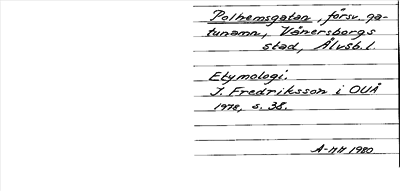 Polhemsgatan, försv. ga-
tunamn, Vänersborgs
stad, Älvsb. l.
Etymologi:
J. Fredriksson i OUÅ
1978, s. 38.
A-NN 1980